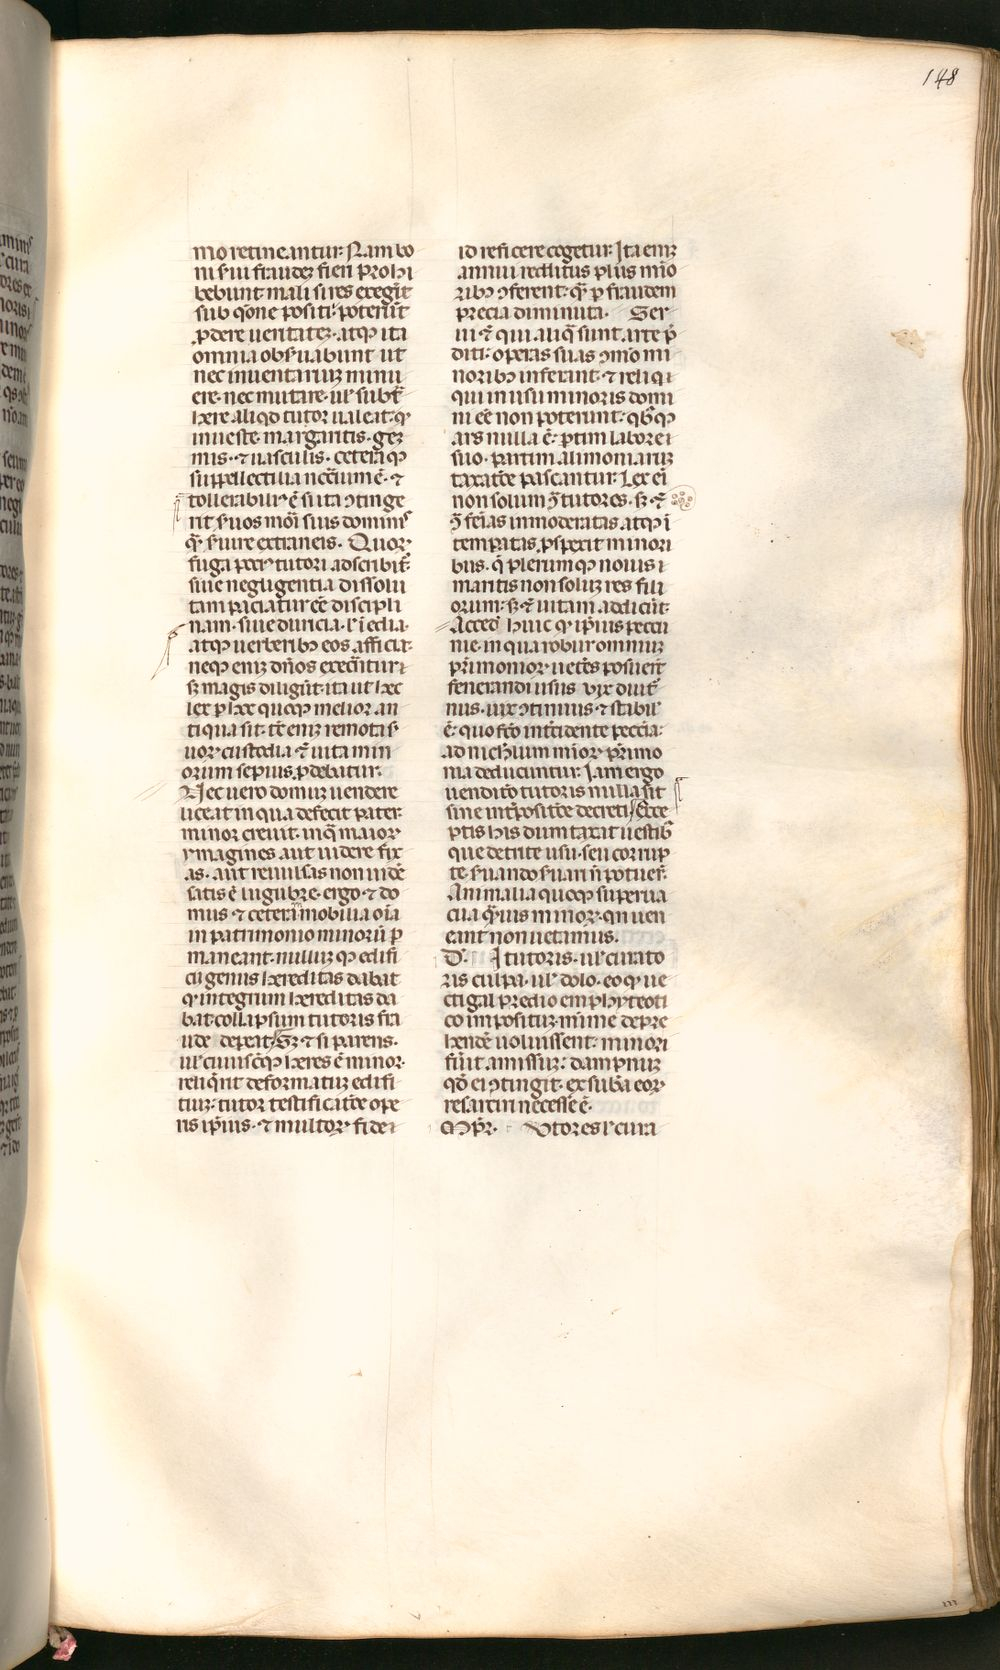 148
mo retineantur. Nam bo
ni s̄ui fraudez fieri prohi
bebunt. mali si res exegit̄
sub q̄one positi. poterūt
ꝓdere ueritatez. atqꝫ ita
omnia obs̄uabunt ut
nec inuentariuz minu
ere. nec mutare. ul' subt̄
here aliqd tutor ualeat. qꝫ
in ueste. margaritis. gez
mis. ⁊ uasculis. ceteraqꝫ
suppellectili a necc̄ium ē. ⁊
tollerabiliꝰ ē si ita ꝯtinge
rit s̄uos mori suis dominis
q̄ȝ s̄uire extraneis. Quoꝝ
fuga pocꝰ tutori adscribit̄
siue negligentia dissolu
tam paciatur eē discipli
nam. siue duricia. l' i edia.
atqꝫ uerberibꝫ eos afficiat.
neqꝫ enīz dn̄os execr̄ntur i
sꝫ magis diligūt. ita ut hec
lex p hec quoqꝫ melior an
tiqua sit. tc̄ enīz remotis s̄
uoꝝ custodia ⁊ uita min
orum sepius ꝓdebatur.
Nec uero domuz uendere
liceat in qua defecit pater.
minor creuit. inq̄ maioꝝ
ymagines aut uidere fix
as. aut reuulsas non uidē
satis ē lugubre. ergo ⁊ do
mus ⁊ cetera īmobilia oīa
in patrimonio minorū p
maneant. nulluz qꝫ edifi
cii genus hereditas dabat
qꝫ integrum hereditas da
bat. collapsum tutoris fra
ude depeat. Sꝫ ⁊ si parens.
ul' cuiuscūqꝫ heres ē minor.
reliq̄rit deformatuz edifi
tiuz. tutor testificatōe ope
ris ip̄ius. ⁊ multoꝝ fide i
id reficere cogetur. Ita enīz
annui redditus plus mīo
ribꝫ ꝯferent. q̄ȝ p fraudem
precia diminuta. Ser
ui ⁊ qui aliq̄ sunt arte p̄
diti. operas suas ꝯmō mi
noribꝫ inferant. ⁊ reliqi
qui in usu minoris domi
ni eē non poterunt. qbꝫqꝫ
ars nulla ē. ptim labore i
suo. partim alimoniaruz
taxatōe pascantur. Lex ei
non solum ꝯ̄ tutores. sꝫ ⁊
ꝯ̄ fēias inmoderatas atqꝫ ī
temꝑatas ꝓspexit minori
bus. q̄ plerumqꝫ nouis i
maritis non soluz res fili
orum. sꝫ ⁊ uitam addicūt.
Acced̄ huic qꝫ ip̄ius peccu
nie. in qua robur omniuz
pr̄imonioꝝ uetes posuerūt
fenerandi usus uix diut̄
nus. uix ꝯtinuus ⁊ stabil'
ē. quo fc̄o int̄cidente peccīa.
ad nichilum mīoꝝ pr̄imo
nia deducuntur. Iam ergo
uenditō tutoris nulla sit
sine int̄positōe decreti. Exce
ptis his dumtaxat uestibꝫ
que detrite usu. seu corrup
te s̄uando s̄uari n̄ potuer̄.
Animalia quoqꝫ superua
cua q̄uis minor. qn ueni
eant non uetamus.
D'. I tutoris. ul' curato
ris culpa. ul' dolo. eo qꝫ ue
ctigal predio emphyteoti
co impositūz. mīme depre
hendē uoluissent. minori
fūit amissuz. dampnuz
qd̄ ei ꝯtingit. ex suba eoꝝ
resarciri necesse ē.
Mp̄r. Tutores l' cura